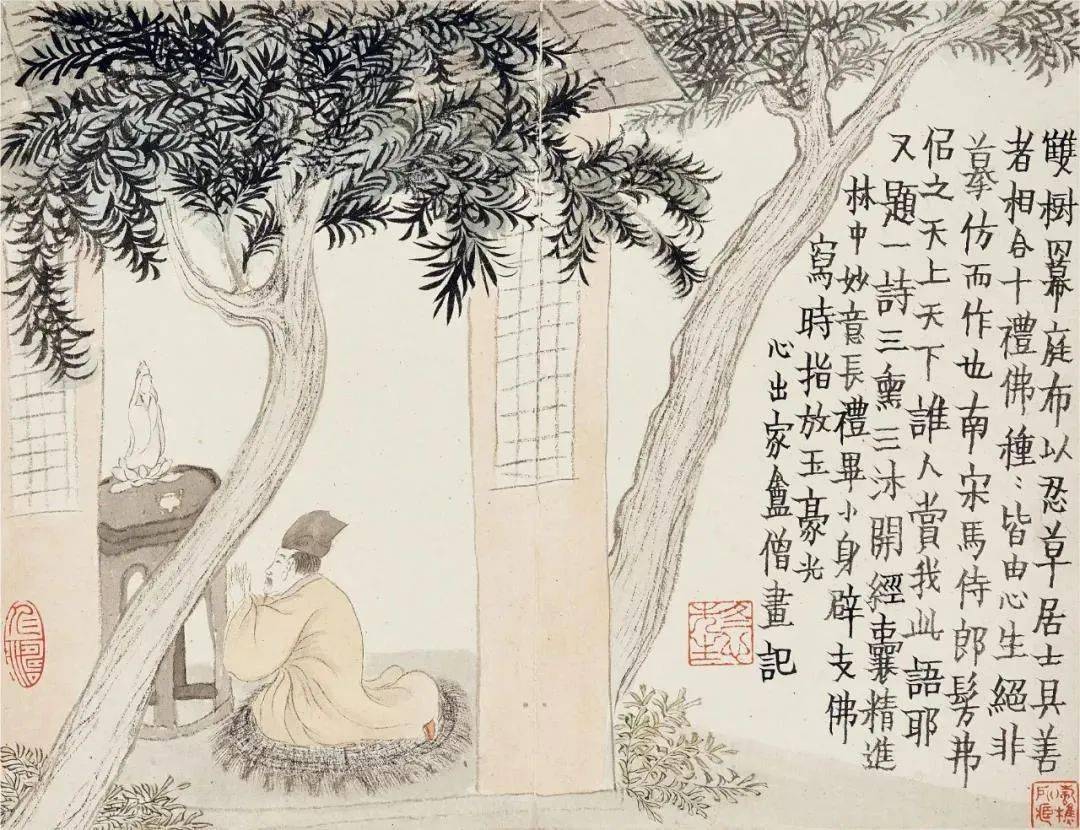 雙樹四幕庭布以忍草居士具善
者相合十禮佛種〻皆由心生絕非
摹仿而作也南宋馬侍郎髣弗
侶之天上天下誰人賞我此語耶
又題一詩三熏三沐開經囊精進
林中妙意長禮畢小身辟支佛
寫時指放玉豪光
心出家盦僧畫記
冬心先生